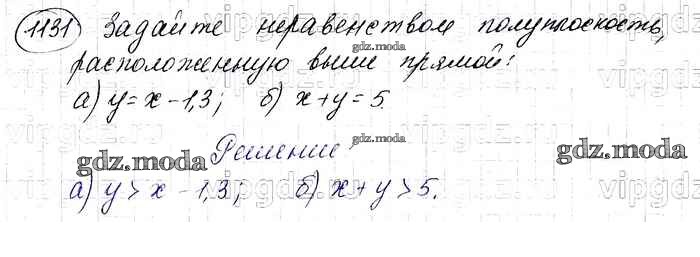 1131 Задайте неравенством полуплоскость,
расположенную выше прямой:
а) y = x - 1,3; б) x + y = 5.
gdz.moda
Решение
gdz.moda gdz.moda
а) y > x - 1,3; б) x + y > 5.